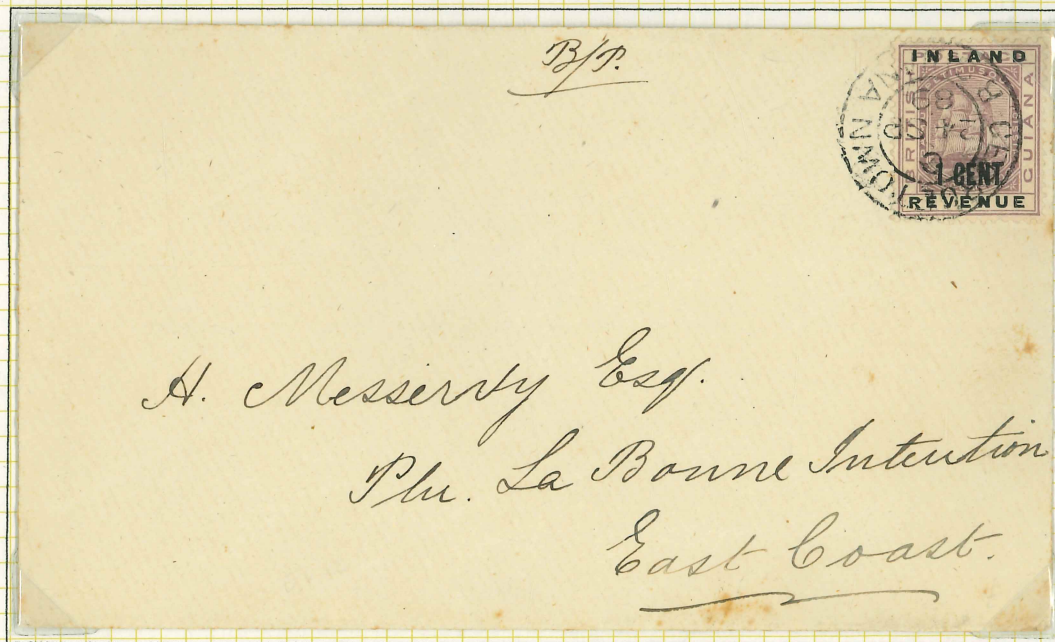 B/P.
INLAND
POSTAGE
BRITISH
GUIANA
1 CENT
REVENUE
H. Messervy Esq.
Pln. La Bonne Intention
East Coast.